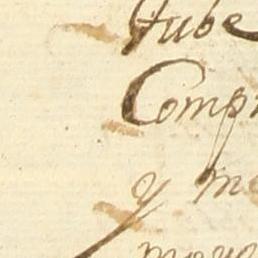 tube
Comp
y me